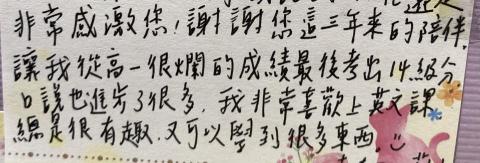 非常感激您！謝謝您這三年來的陪伴，
讓我從高一很爛的成績最後考出14級分
口說也進步了很多，我非常喜歡上英文課
總是很有趣，又可以學到很多東西。